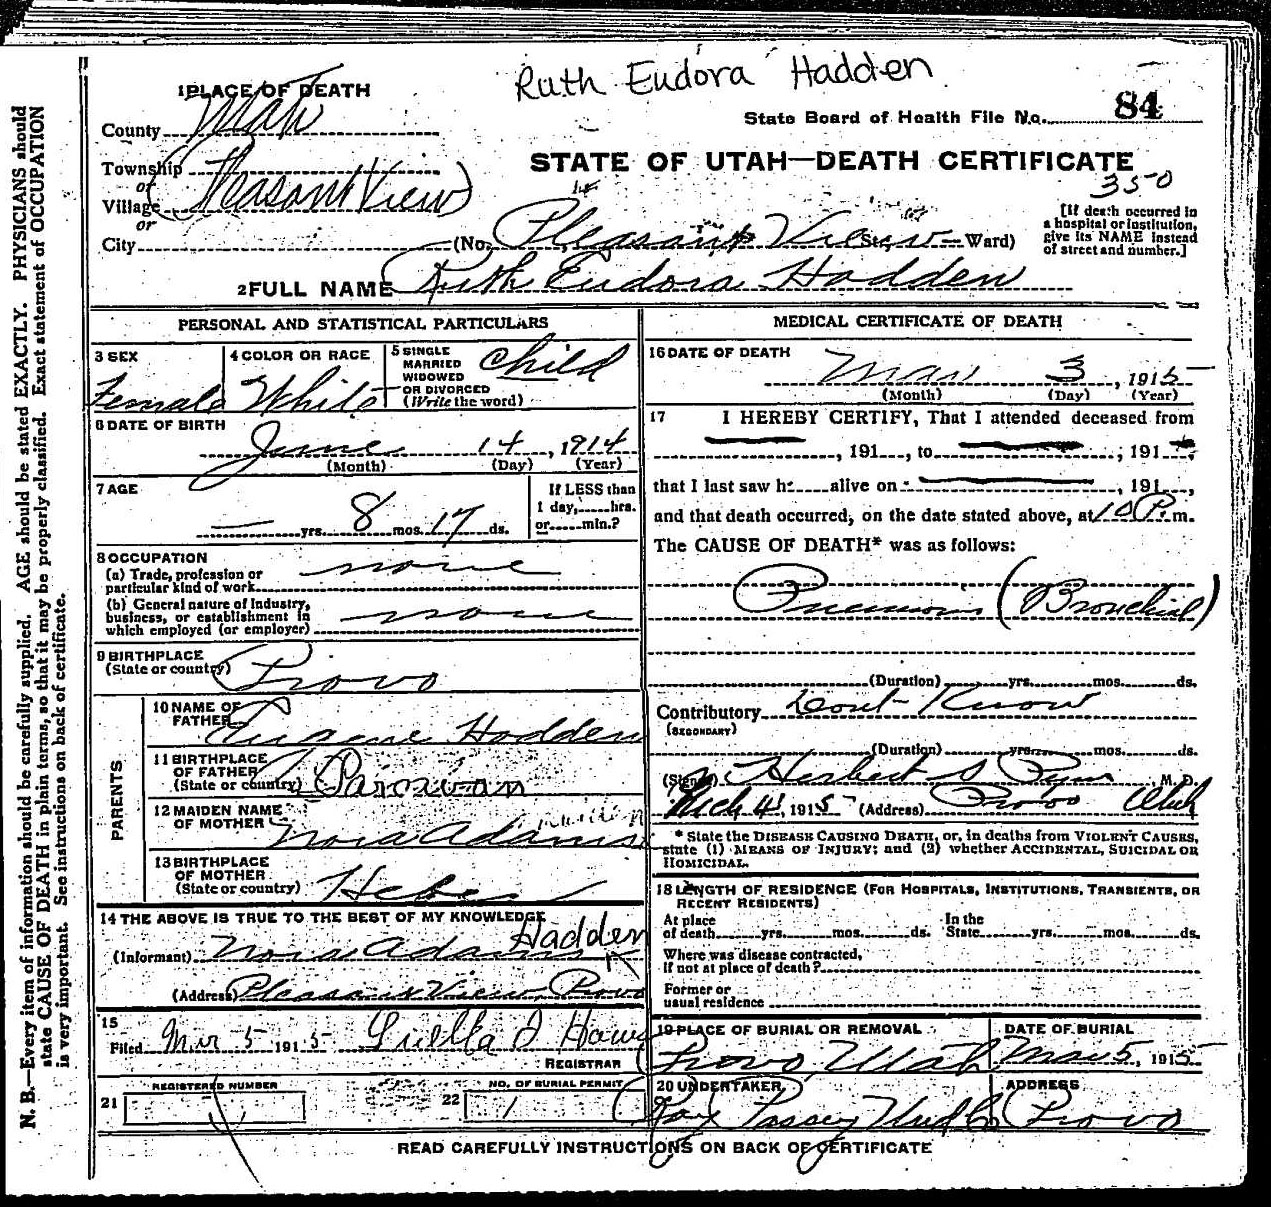 Ruth Eudora Hadden
1 PLACE OF DEATH
County Utah
State Board of Health File No. 84
Township
or
Village Pleasant View
or
City
STATE OF UTAH—DEATH CERTIFICATE
350
[If death occurred in
a hospital or institution,
give its NAME instead
of street and number.]
(No. Pleasant View St.; Ward)
2 FULL NAME Ruth Eudora Hadden
PERSONAL AND STATISTICAL PARTICULARS
3 SEX
Female
4 COLOR OR RACE
White
5 SINGLE
MARRIED
WIDOWED
OR DIVORCED
(Write the word)
Child
6 DATE OF BIRTH
June 14, 1914
(Month) (Day) (Year)
7 AGE
— yrs. 8 mos. 17 ds.
If LESS than
1 day, hrs.
or min.?
8 OCCUPATION
(a) Trade, profession or
particular kind of work none
(b) General nature of Industry,
business, or establishment in
which employed (or employer) none
9 BIRTHPLACE
(State or country) Provo
PARENTS
10 NAME OF
FATHER Eugene Hadden
11 BIRTHPLACE
OF FATHER
(State or country) Parowan
12 MAIDEN NAME
OF MOTHER Nora Adams
13 BIRTHPLACE
OF MOTHER
(State or country) Heber
14 THE ABOVE IS TRUE TO THE BEST OF MY KNOWLEDGE
(Informant) Nora Adams Hadden
(Address) Pleasant View, Provo
15
Filed Mar 5 1915 Luella
REGISTRAR
REGISTERED NUMBER
21
NO. OF BURIAL PERMIT
22 1
MEDICAL CERTIFICATE OF DEATH
16 DATE OF DEATH
Mar 3, 1915
(Month) (Day) (Year)
17 I HEREBY CERTIFY, That I attended deceased from
, 191 , to , 191 ,
that I last saw h alive on , 191 ,
and that death occurred, on the date stated above, at 10 P. m.
The CAUSE OF DEATH* was as follows:
Pneumonia (Bronchial)
(Duration) yrs. mos. ds.
Contributory Dont Know
(SECONDARY)
(Duration) yrs. mos. ds.
(Signed) Herbert S Pyne M. D.
Mch 4, 1915 (Address) Provo Utah
* State the DISEASE CAUSING DEATH, or, in deaths from VIOLENT CAUSES,
state (1) MEANS OF INJURY; and (2) whether ACCIDENTAL, SUICIDAL OR
HOMICIDAL.
18 LENGTH OF RESIDENCE (FOR HOSPITALS, INSTITUTIONS, TRANSIENTS, OR
RECENT RESIDENTS)
At place
of death yrs. mos. ds.
In the
State yrs. mos. ds.
Where was disease contracted,
if not at place of death?
Former or
usual residence
19 PLACE OF BURIAL OR REMOVAL
Provo Utah
DATE OF BURIAL
Mar 5, 1915
20 UNDERTAKER
Passey Und Co
ADDRESS
Provo
READ CAREFULLY INSTRUCTIONS ON BACK OF CERTIFICATE
N. B.—Every item of information should be carefully supplied. AGE should be stated EXACTLY. PHYSICIANS should
state CAUSE OF DEATH in plain terms, so that it may be properly classified. Exact statement of OCCUPATION
is very important. See instructions on back of certificate.